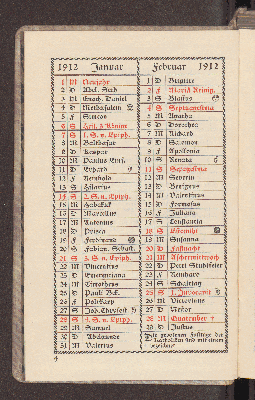 1912 Januar
1 M Neujahr
2 D Abel, Seth
3 M Enoch, Daniel
4 D Methusalem
5 F Simeon
6 S Heil. 3 Könige
7 S 1. S. n. Epiph.
8 M Balthasar
9 D Kaspar
10 M Paulus Eins.
11 D Erhard
12 F Reinhold
13 S Hilarius
14 S 2. S. n. Epiph.
15 M Habakuk
16 D Marcellus
17 M Antonius
18 D Prisca
19 F Ferdinand
20 S Fabian, Sebast.
21 S 3. S. n. Epiph.
22 M Vincentius
23 D Emerentiana
24 M Timotheus
25 D Pauli Bek.
26 F Polykarp
27 S Joh. Chrysost.
28 S 4. S. n. Epiph.
29 M Samuel
30 D Adelgunde
31 M Valerius
Februar 1912
1 D Brigitte
2 F Mariä Reinig.
3 S Blasius
4 S Septuagesima
5 M Agatha
6 D Dorothea
7 M Richard
8 D Salomon
9 F Apollonia
10 S Renata
11 S Sexagesima
12 M Severin
13 D Benignus
14 M Valentinus
15 D Formosus
16 F Juliana
17 S Constantia
18 S Estomihi
19 M Susanna
20 D Fastnacht
21 M Aschermittwoch
22 D Petri Stuhlfeier
23 F Reinhard
24 S Schalttag
25 S 1. Invocavit
26 M Victorinus
27 D Nestor
28 M Quatember †
29 D Justus
Die gebotenen Festtage der
Katholiken sind mit einem
† bezeichnet
4